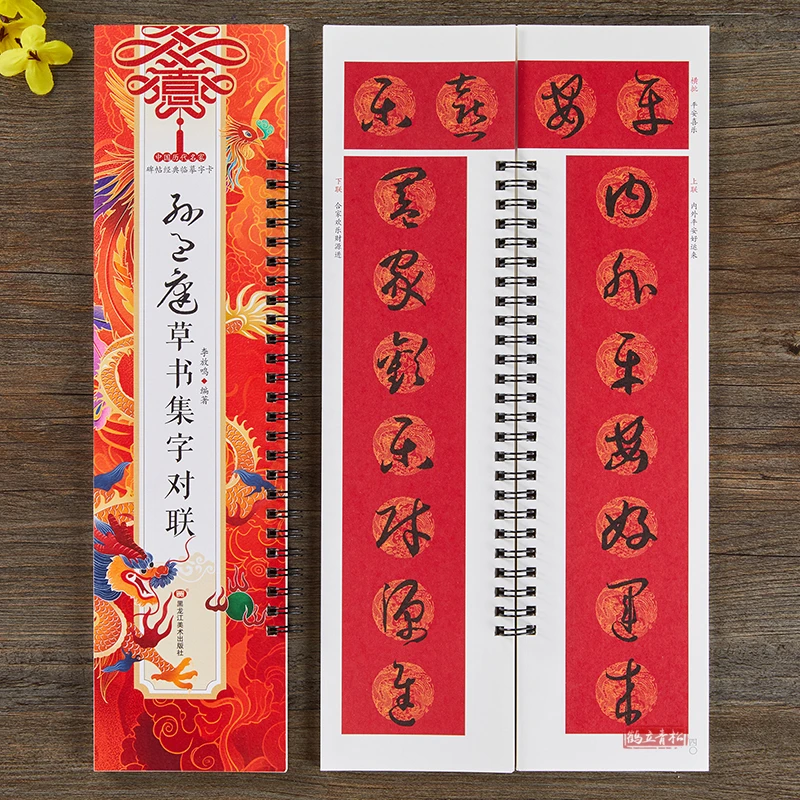 中国历代名家
碑帖经典临摹字卡
孙过庭草书集字对联
李放鸣·编著
黑龙江美术出版社
横批 平安喜乐
平安喜乐
上联 内外平安好运来
内外平安好运来
下联 合家欢乐财源进
合家欢乐财源进
鹤立青松
四〇